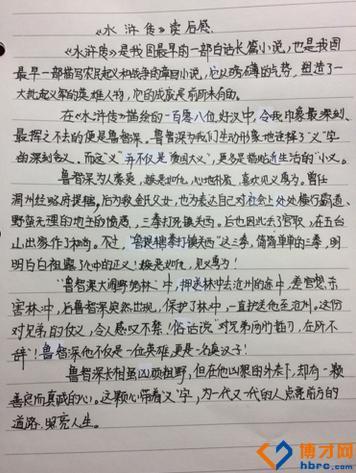 《水浒传》读后感
《水浒传》是我国最早的一部白话长篇小说,也是我国
最早一部描写农民起义和战争的章回小说,它以磅礴的气势,塑造了一
大批起义军的英雄人物,它的成就是前所未有的。
在《水浒传》描绘的一百零八位好汉中,令我印象最深刻、
最挥之不去的便是鲁智深。鲁智深为我们生动形象地诠释了“义”字
的深刻含义。而这“义”并不仅是“爱国大义”,更多是贴近生活的“小义”。
鲁智深为人豪爽,嫉恶如仇,心地朴素,喜欢见义勇为。曾任
渭州经略府提辖,后为救金氏父女,也为表达自己对社会上处处横行霸道、
野蛮无理的地主的愤恶,三拳打死镇关西。后也因此丢了官职,在五台
山出家作了和尚。不过,“鲁提辖拳打镇关西”这三拳,简简单单的三拳,明
明白白袒露了心中的正义!嫉恶如仇,见义勇为!
“鲁智深大闹野猪林”中,押送林冲去沧州的途中,差官想杀
害林冲,后鲁智深突然出现,保护了林冲,一直护送他至沧州。这份
对兄弟的仗义,令人感叹不禁!俗话说“对兄弟两肋插刀,在所不
辞”!鲁智深他不仅是一位英雄,更是一名真汉子!
鲁智深长相虽凶顽粗野,但在他凶暴的外表下,却有一颗
善良而真诚的心。这颗心带着“义”字,为一代又一代的人点亮前方的
道路,照亮人生。
博才网
hbrc.com